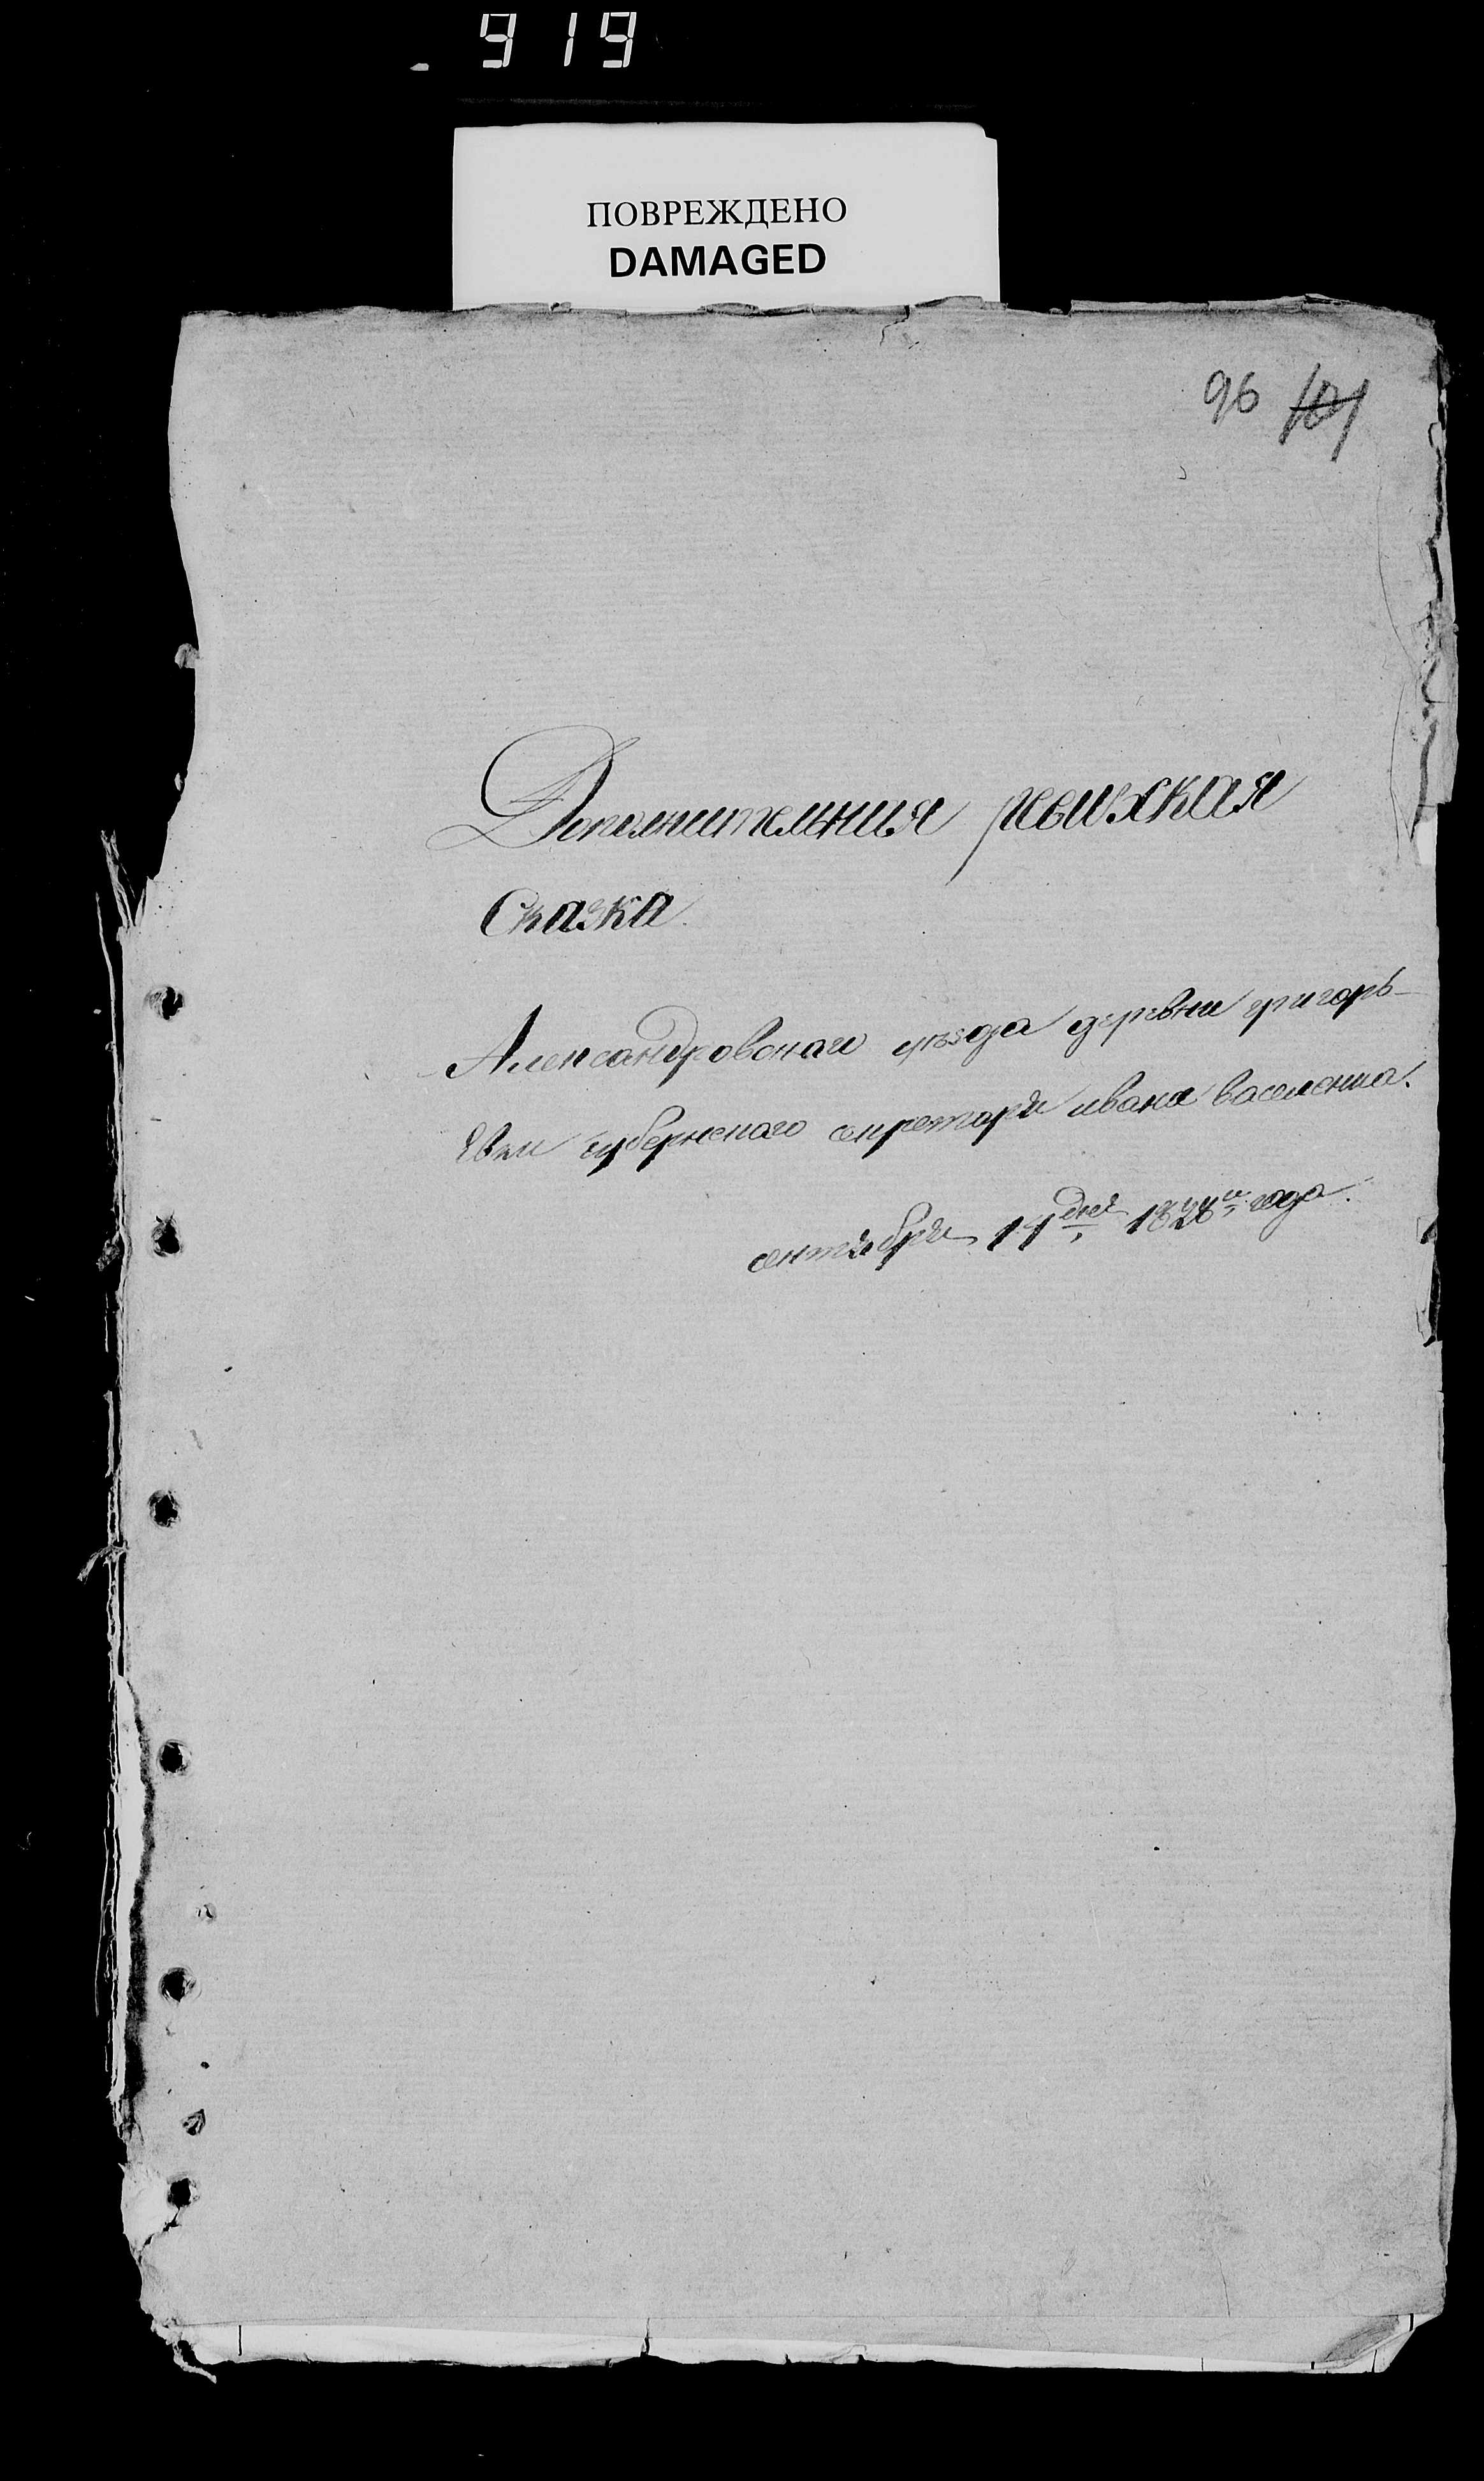 919
ПОВРЕЖДЕНО
DAMAGED
96 101
Дополнителния ревижская
Сказка.
Александровскаго уѣзда деревни григорь-
Евки губернского секретаря ивана василенка.
сентября 11 дня 1828го года.